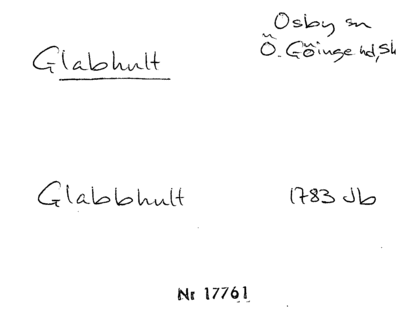 Glabhult
Osby sn
Ö. Göinge hd, Sk
Glabbhult
1783 Jb
Nr 17761